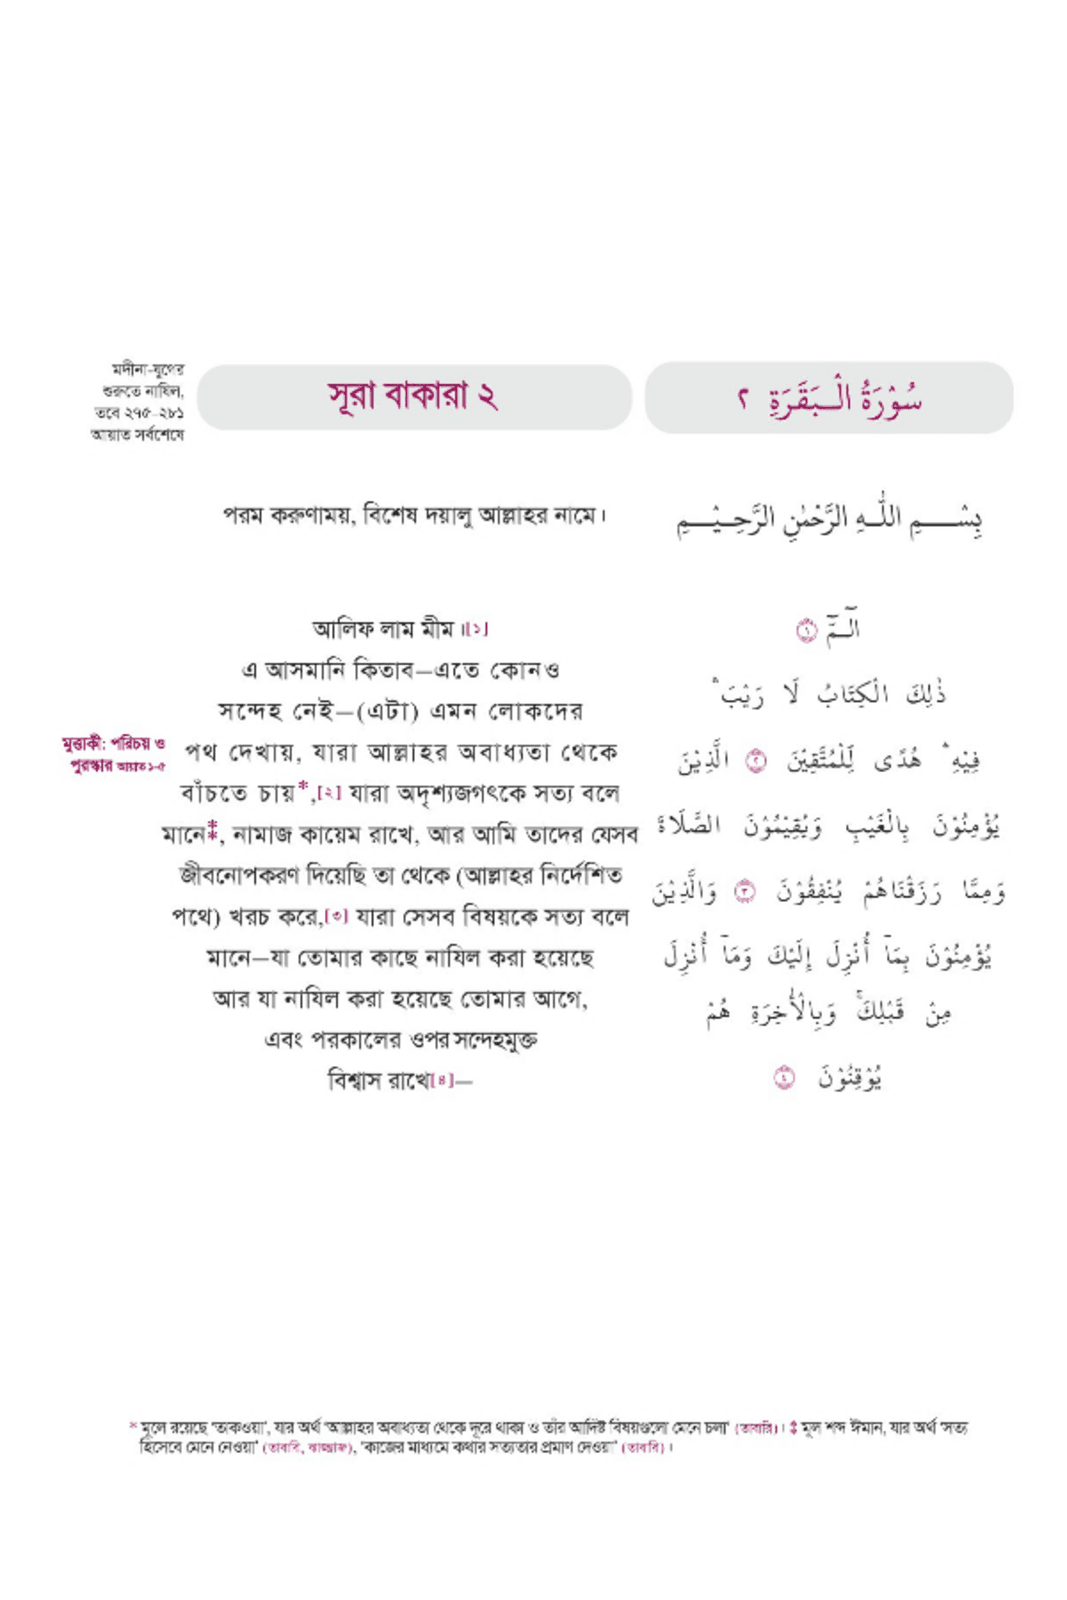 মদীনা-যুগের
শুরুতে নাযিল,
তবে ২৭৫-২৮১
আয়াত সর্বশেষে
সূরা বাকারা ২
سُوْرَةُ الْبَقَرَةِ ٢
পরম করুণাময়, বিশেষ দয়ালু আল্লাহর নামে।
بِسْمِ اللّٰهِ الرَّحْمٰنِ الرَّحِيْمِ
আলিফ লাম মীম।[১]
এ আসমানি কিতাব—এতে কোনও
সন্দেহ নেই—(এটা) এমন লোকদের
মুত্তাকী: পরিচয় ও
পুরস্কার আয়াত ১-৫
পথ দেখায়, যারা আল্লাহর অবাধ্যতা থেকে
বাঁচতে চায়*,[২] যারা অদৃশ্যজগৎকে সত্য বলে
মানে⁑, নামাজ কায়েম রাখে, আর আমি তাদের যেসব
জীবনোপকরণ দিয়েছি তা থেকে (আল্লাহর নির্দেশিত
পথে) খরচ করে,[৩] যারা সেসব বিষয়কে সত্য বলে
মানে—যা তোমার কাছে নাযিল করা হয়েছে
আর যা নাযিল করা হয়েছে তোমার আগে,
এবং পরকালের ওপর সন্দেহমুক্ত
বিশ্বাস রাখে[৪]—
الٓـمّٓ ۝١
ذٰلِكَ الْكِتَابُ لَا رَيْبَ ۛ
فِيْهِ ۛ هُدًى لِّلْمُتَّقِيْنَ ۝٢ الَّذِيْنَ
يُؤْمِنُوْنَ بِالْغَيْبِ وَيُقِيْمُوْنَ الصَّلَاةَ
وَمِمَّا رَزَقْنَاهُمْ يُنْفِقُوْنَ ۝٣ وَالَّذِيْنَ
يُؤْمِنُوْنَ بِمَآ أُنْزِلَ إِلَيْكَ وَمَآ أُنْزِلَ
مِنْ قَبْلِكَ ۚ وَبِالْأٰخِرَةِ هُمْ
يُوْقِنُوْنَ ۝٤
* মূলে রয়েছে ‘তাকওয়া’, যার অর্থ ‘আল্লাহর অবাধ্যতা থেকে দূরে থাকা ও তাঁর আদিষ্ট বিষয়গুলো মেনে চলা’ (তাবারি)। ⁑ মূল শব্দ ঈমান, যার অর্থ ‘সত্য
হিসেবে মেনে নেওয়া’ (তাবারি, যাজ্জাজ), ‘কাজের মাধ্যমে কথার সত্যতার প্রমাণ দেওয়া’ (তাবারি)।